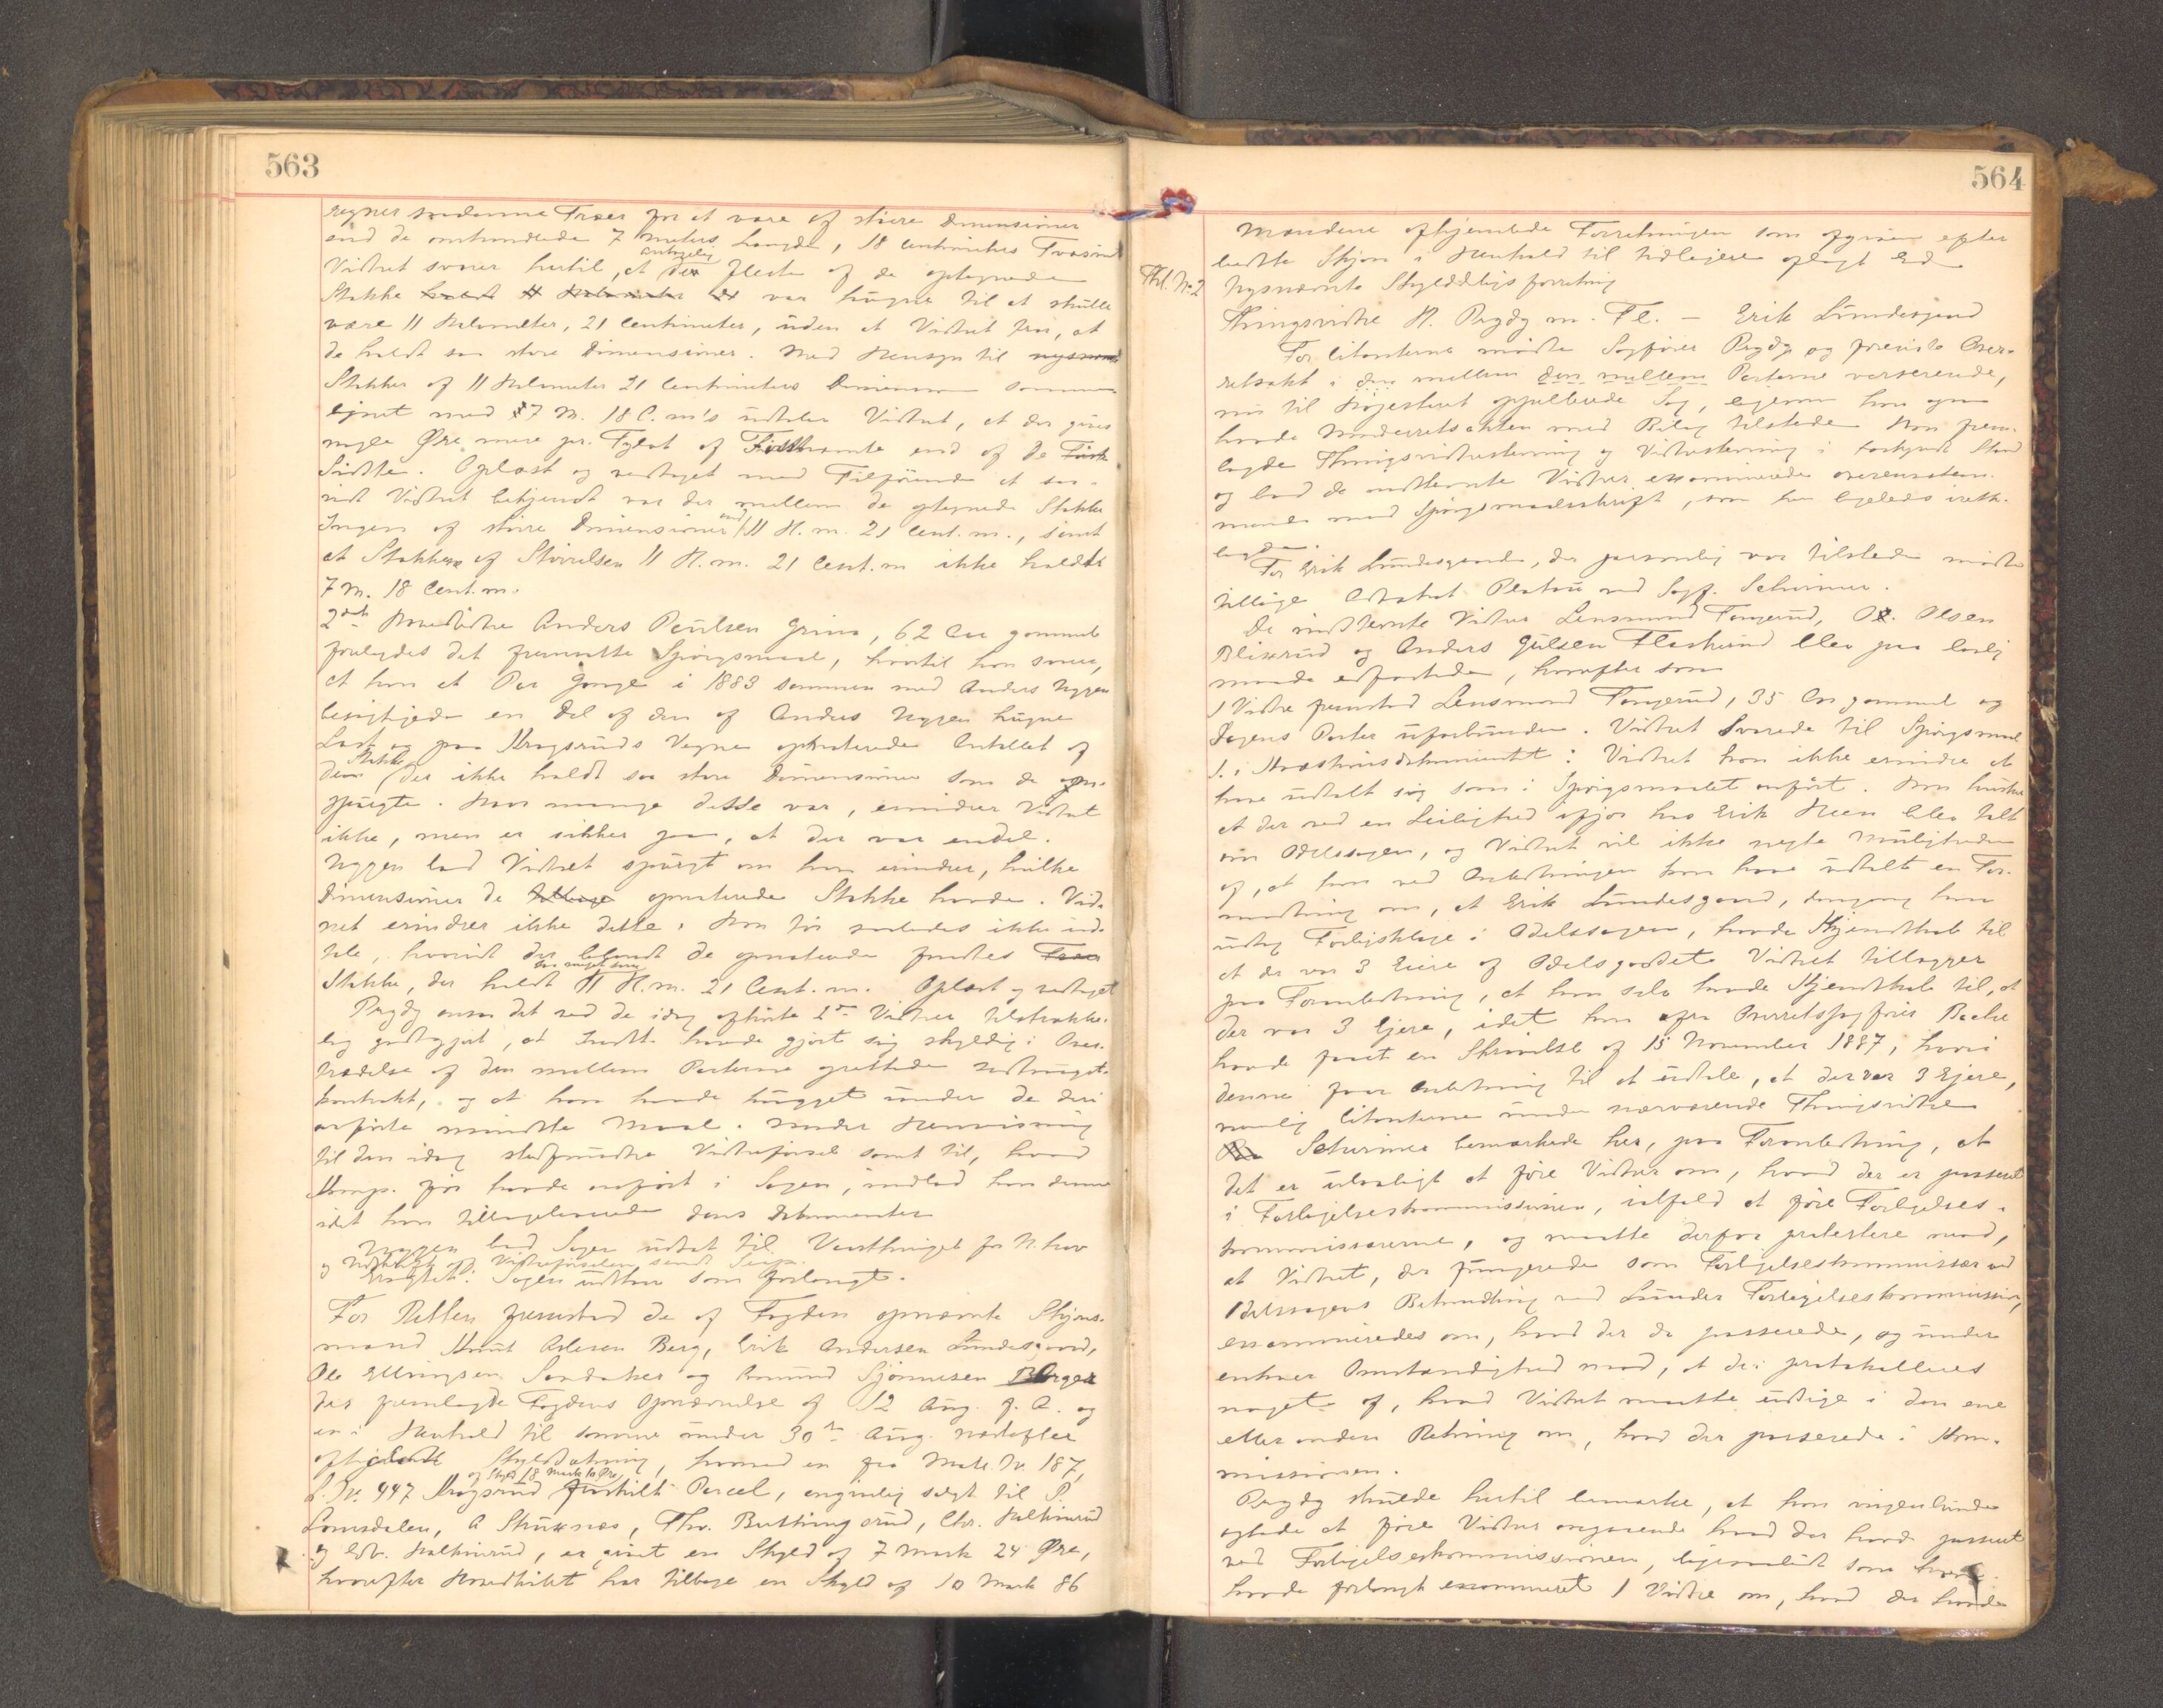 563
regner saadanne Træer for at være af større Dimensioner
end de omhandlede 7 Meters Længde, 18 Centimeters Tværsnit
Vidnet svarer hertil, at antagelig de fleste af de optegnede
Stokke var hugne til at skulle
være 11 Halvmeter, 21 Centimeter, uden at Vidnet tror, at
de holdt saa store Dimensioner. Med Hensyn til
Stokker af 11 Halvmeter 21 Centimeters Dimension sammen
lignet med 7 M. 18 C.m's udtaler Vidnet, at der gives
nogle Øre mere pr. Tylvt af Førstnævnte end af de
Sidste. Oplæst og vedtaget med Tilføiende at saa-
vidt Vidnet bekjendt var der mellem de optegnede Stokke
Ingen af større Dimensioner end 11 H.m. 21 Cent.m., samt
at Stokkene af Størrelsen 11 H.m. 21 Cent.m ikke holdt
7 M. 18 Cent.m.
2det Hovedvidne Anders Paulsen Grina, 62 Aar gammel
forelagdes det fremsatte Spørgsmaal, hvortil han svarer,
at han et Par Gange i 1883 sammen med Anders Nyggen
besigtigede en Del af den af Anders Nyggen hugne
Last og paa Kragsruds Vegne opnoterede Antallet af
dem Stokke der ikke holdt saa store Dimensioner som de
spurgte. Hvor mange disse var, erindrer Vidnet
ikke, men er sikker paa, at der var endel.
Nyggen lod Vidnet spørgt om han erindrer, hvilke
Dimensioner de opnoterede Stokke havde. Vid-
net erindrer ikke dette. Han tør saaledes ikke ud-
tale, hvorvidt der blandt de opnoterede fandtes
Stokke, der holdt 11 H.m. 21 Cent.m. Oplæst og vedtaget
Prydz ansaa det ved de idag afhørte 2de Vidner tilstrække-
lig godtgjort, at Indst. havde gjort sig skyldig i Over-
trædelse af den mellem Parterne oprettede
kontrakt, og at han havde hugget under de deri
anførte mindste Maal. Under Henvisning
til den idag stedfundne Vidneførsel samt til, hvad
Komp. før havde anført i Sagen, indlod han denne
idet han tilbageleverede dens Dokumenter
Nyggen lod Sagen udsat til Vaarthinget for
og Udskrift af Vidneførselen samt
Eragtet: Sagen udsættes som forlangt.
For Retten fremstod de af Fogden opnævnte Skjøns-
mænd Knut Olesen Berg, Erik Andersen Lundesgaard,
Ole Ellingsen Sandaker og Amund Sjønnesen
der fremlagde Fogdens Opnævnelse af 12 Aug. f. A. og
en i Henhold til samme under 30te Aug. næstefter
afhjemlet Skyldsætning, hvorved en fra Matr. No. 187,
L. No. 447 Kragsrud af Skyld 18 Mark 10 Øre fraskilt Parcel, angivelig solgt til P.
Lomsdalen, A Skuxnæs, Thv. Buttingsrud, Chr. Halkinrud
og Edv. Halkinrud, er givet en Skyld af 7 Mark 24 Øre,
hvorefter Hovedbølet har tilbage en Skyld af 10 Mark 86
564
Mændene afhjemlede Forretningen som afgiven efter
bedste Skjøn i Henhold til tidligere aflagt Ed
Thl. No 2
Nysnævnte Skylddelingsforretning
Thingsvidne H. Prydz m. Fl. – Erik Lundesgaard
For Citanterne mødte Sagfører Prydz og foreviste Over-
retsakt i den mellem den mellem Parterne verserende,
nu til Høiesteret appellerede Sag, ligesom han ogsaa
havde Underretsakten med Bilag tilstede Han frem-
lagde Thingsvidnestevning og Vidnestevning i forkyndt Stand
og lod de indstevnte Vidner examinerede overensstem-
mende med Spørgsmaalsskrift, som han ligeledes irette-
lagde.
For Erik Lundesgaard, der personlig var tilstede mødte
tillige Advokat Platou ved Sagf. Schwinee.
De indstevnte Vidner Lensmand Fongerud, O. Olsen
Blixrud og Anders Gulsen Flaskerud blev paa lovlig
maade edfæstede, hvorefter som
1 Vidne fremstod Lensmand Fongerud, 35 Aar gammel og
Sagens Parter uforbunden. Vidnet svarede til Spørgsmaal
1. i Kvæstionsdokumentet: Vidnet kan ikke erindre at
have udtalt sig som i Spørgsmaalet anført. Han husker
at der ved en Leilighed ifjor hos Erik Heen blev talt
om Odelssagen, og Vidnet vil ikke negte Muligheden
af, at han ved Anledningen kan have udtalt en For-
modning om, at Erik Lundesgaard, dengang han
udtog Forligsklage i Odelssagen, havde Kjendskab til
at der var 3 Eiere af Odelsgodset. Vidnet tillægger
paa Foranledning, at han selv havde Kjendskab til, at
der var 3 Ejere, idet han fra Overretssagfører Bache
havde faaet en Skrivelse af 15 November 1887, hvori
denne faar Anledning til at udtale, at der var 3 Ejere,
nemlig Citanterne under nærværende Thingsvidne
Schwinee bemærkede her, paa Foranledning, at
det er ulovligt at føre Vidner om, hvad der er passeret
i Forligelseskommissionen, ialfald at føre Forligelses-
kommissærerne, og maatte derfor protestere mod,
at Vidnet, der fungerede som Forligelseskommissær ved
Odelssagens Behandling ved Lunder Forligelseskommission,
examineredes om, hvad der da passerede, og under
enhver Omstændighed mod, at der protokolleres
noget af, hvad Vidnet maatte udsige i den ene
eller anden Retning om, hvad der passerede i Kom-
missionen.
Prydz skulde hertil bemærke, at han ingenlunde
agtede at føre Vidner angaaende hvad der havde passeret
ved Forligelseskommissionen, ligesaalidt som han
havde forlangt examineret 1 Vidne om, hvad der havde